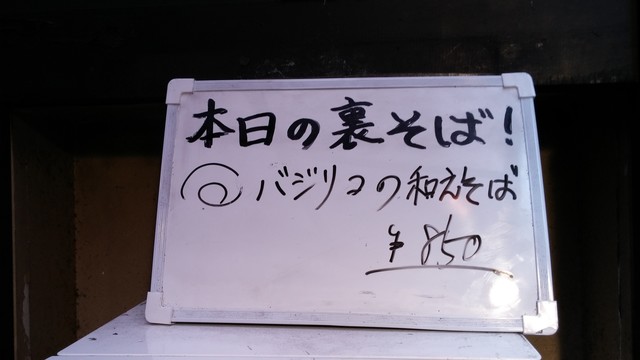 本日の裏そば!
◎バジリコの和えそば
¥850